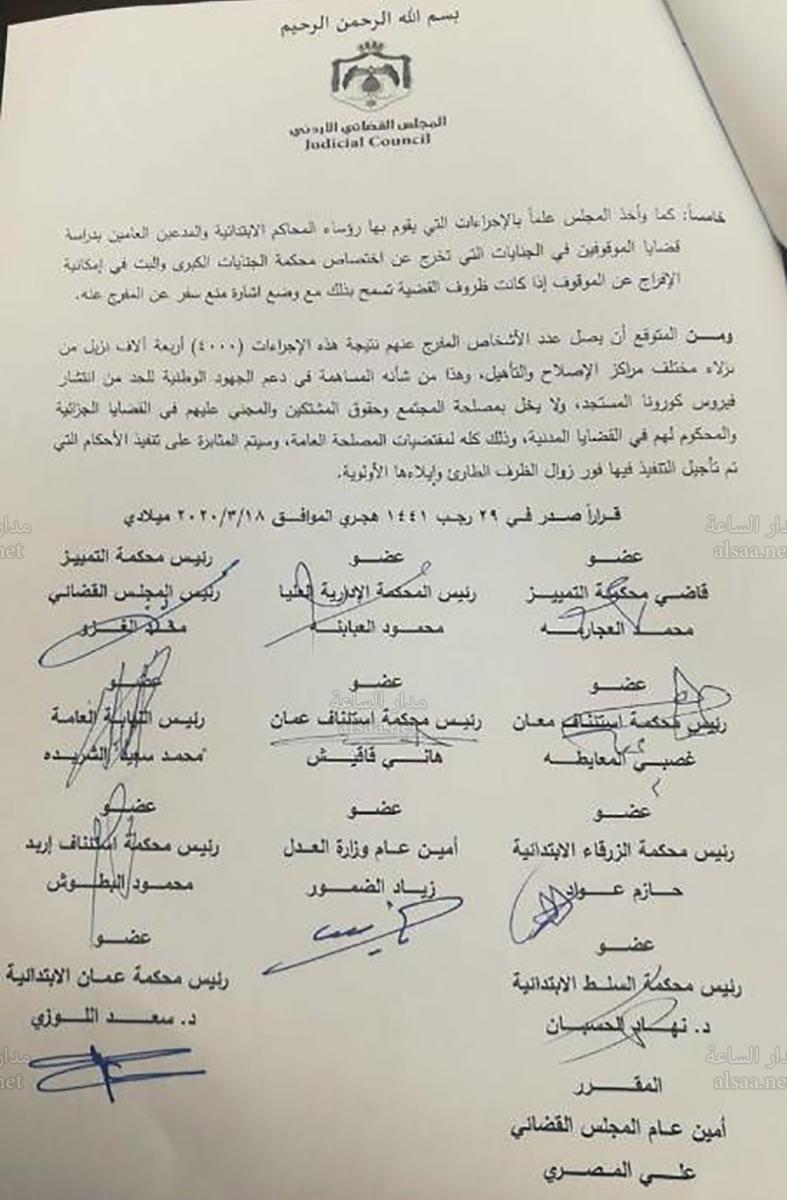 بسم الله الرحمن الرحيم
المجلس القضائي الأردني
Judicial Council
خامساً: كما وأخذ المجلس علماً بالإجراءات التي يقوم بها رؤساء المحاكم الابتدائية والمدعين العامين بدراسة
قضايا الموقوفين في الجنايات التي تخرج عن اختصاص محكمة الجنايات الكبرى والبت في إمكانية
الإفراج عن الموقوف إذا كانت ظروف القضية تسمح بذلك مع وضع اشارة منع سفر عن المفرج عنه.
ومـــن المتوقع أن يصل عدد الأشخاص المفرج عنهم نتيجة هذه الإجراءات (٤٠٠٠) أربعة آلاف نزيل من
نزلاء مختلف مراكز الإصلاح والتأهيل، وهذا من شأنه المساهمة في دعم الجهود الوطنية للحد من انتشار
فيروس كورونا المستجد، ولا يخل بمصلحة المجتمع وحقوق المشتكين والمجني عليهم في القضايا الجزائية
والمحكوم لهم في القضايا المدنية، وذلك كله لمقتضيات المصلحة العامة، وسيتم المثابرة على تنفيذ الأحكام التي
تم تأجيل التنفيذ فيها فور زوال الظرف الطارئ وإيلاءها الأولوية.
قـراراً صدر فـي ٢٩ رجب ١٤٤١ هجري الموافـق ٢٠٢٠/٣/١٨ ميلادي
عضـــو عضـــو رئيس محكمة التمييز
قاضـي محكمة التمييـز رئيس المحكمة الإدارية العليا رئيس المجلس القضائي
محمـد العجارمـه محمـود العبابنـه محمد الغـزو
عضـــو عضـــو عضـــو
رئيس محكمة استئناف معان رئيس محكمة استئناف عمان رئيس النيابة العامة
غصبـي المعايطه هانـي قاقيـش محمد سعيد الشريده
عضـــو عضـــو عضـــو
رئيس محكمة الزرقاء الابتدائية أمين عـام وزارة العدل رئيس محكمة استئناف إربد
حـازم عـواد زيـاد الضمور محمـود البطـوش
عضـــو عضـــو
رئيس محكمة السلـط الابتدائية رئيس محكمة عمـان الابتدائية
د. نهـار الحسبـان د. سعـــد اللـوزي
المقـــرر
أمين عـام المجلس القضائي
علـي المصـري
مدار الساعة
alsaa.net